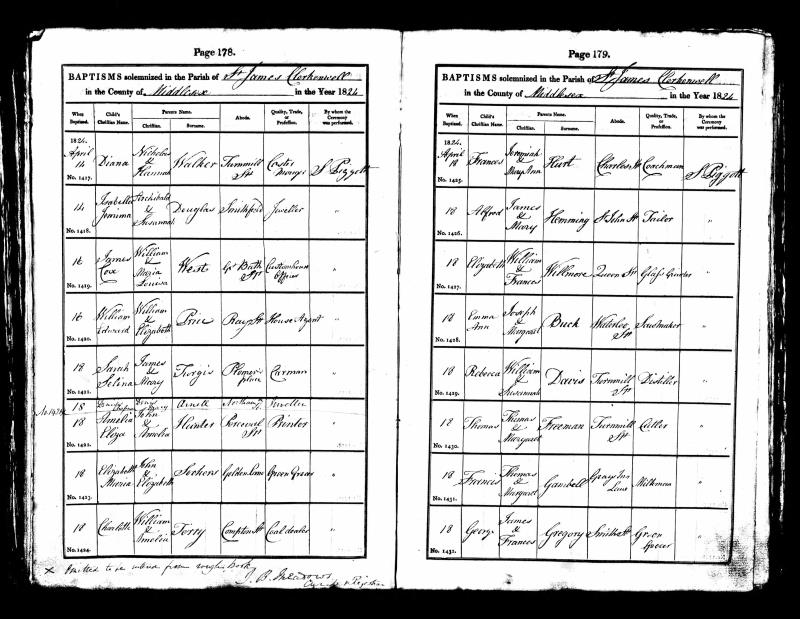 Page 178.
BAPTISMS solemnized in the Parish of St. James Clerkenwell
in the County of Middlesex in the Year 1824
When Baptized. Child's Christian Name. Parents Name. Christian. Surname. Abode. Quality, Trade, or Profession. By whom the Ceremony was performed.
1824.
April 14 Diana Nicholas & Hannah Walker Turnmill St Coster S Piggott
No. 1417.
14 Isabella Archibald & Susannah Douglas Smithford Jeweller "
No. 1418.
16 James Cox William & Maria Louisa West Gt Bath St Customhouse Officer "
No. 1419.
16 William Edward William & Elizabeth Price Ray St House Agent "
No. 1420.
18 Sarah Selina James & Mary Turgis place Carman "
No. 1421.
18 Arnell Jeweller
18 Amelia Eliza John & Amelia Hunter Percival St Printer "
No. 1422.
18 Elizabeth Maria John & Elizabeth Golden Lane Green Grocer "
No. 1423.
18 Charlotte William & Amelia Terry Compton St Coal dealer "
No. 1424.
x Omitted to be entered from rough Book
J. B. Meadows
Page 179.
BAPTISMS solemnized in the Parish of St. James Clerkenwell
in the County of Middlesex in the Year 1824
When Baptized. Child's Christian Name. Parents Name. Christian. Surname. Abode. Quality, Trade, or Profession. By whom the Ceremony was performed.
1824.
April 18 Frances Jeremiah & Mary Ann Hurt Charles St Coachman S Piggott
No. 1425.
18 Alfred James & Mary Hemming St John St Tailor "
No. 1426.
18 Elizabeth William & Frances Wellmore Queen St Glass Grinder "
No. 1427.
18 Emma Ann Joseph & Margaret Buck Waterloo St "
No. 1428.
18 Rebecca William & Susannah Davis Turnmill St Distiller "
No. 1429.
18 Thomas Thomas & Margaret Freeman Turnmill St Cutler "
No. 1430.
18 Frances Thomas & Margaret Gambell Grays Inn Lane Milkman "
No. 1431.
18 George James & Frances Gregory Smith St Green Grocer "
No. 1432.